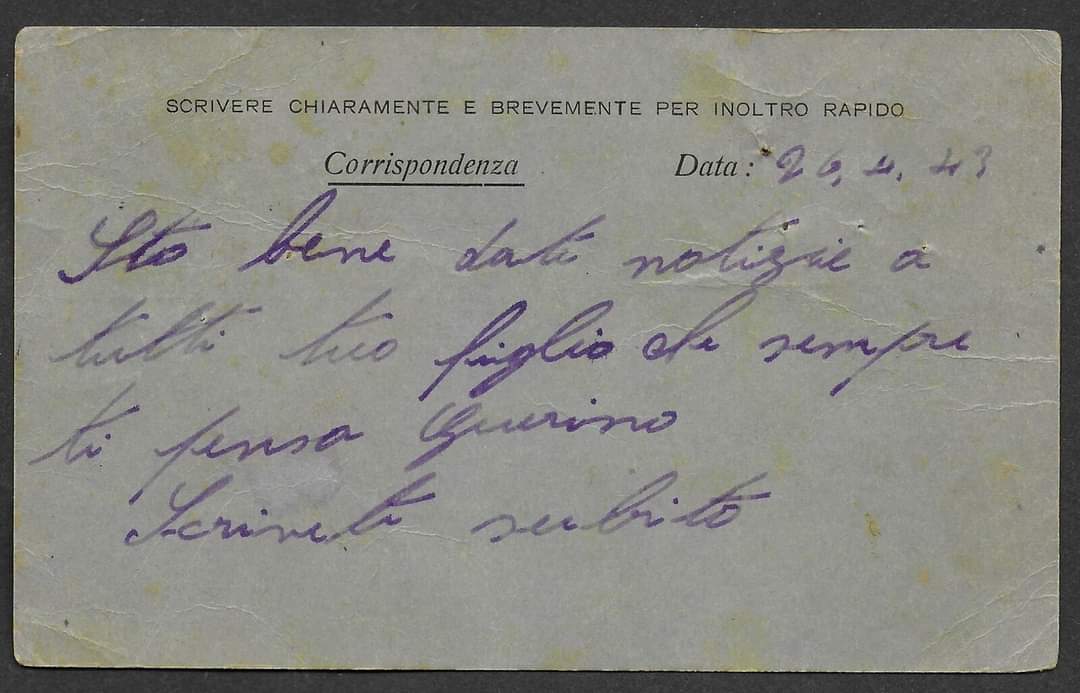 SCRIVERE CHIARAMENTE E BREVEMENTE PER INOLTRO RAPIDO
Corrispondenza Data: 26.4.43
Sto bene dati notizie a
tutti tuo figlio che sempre
ti pensa Guerino
Scriveti subito